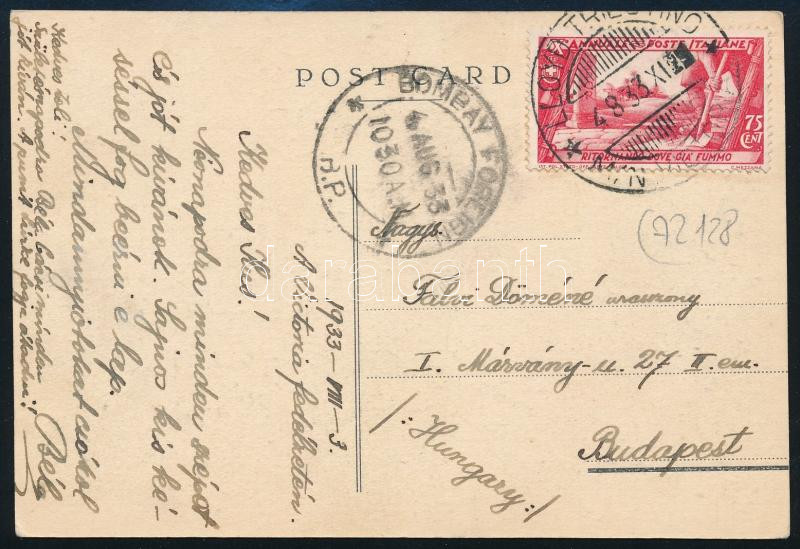 POST CARD
LLOYD TRIESTINO
4.8.33.XI
ANNUALE POSTE ITALIANE
RITORNANDO DOVE GIÀ FUMMO
75
CENT
C. MEZZANA
BOMBAY FOREIGN
4 AUG 33
10 30 A.M.
(AZ 128
darabanth
Nagys.
Döméné uraszony
I. Márvány-u. 27 II. em.
Budapest
/: Hungary :/
1933-VIII-3.
A Victoria fedélzetén.
Kedves Kus!
Névnapodra minden szépet
és jót kivánok. Sajnos kis ké-
séssel fog beérni e lap.
Mindannyiótokat csókol
Béla
Kedves
Béla bácsi minden
jót kiván. A